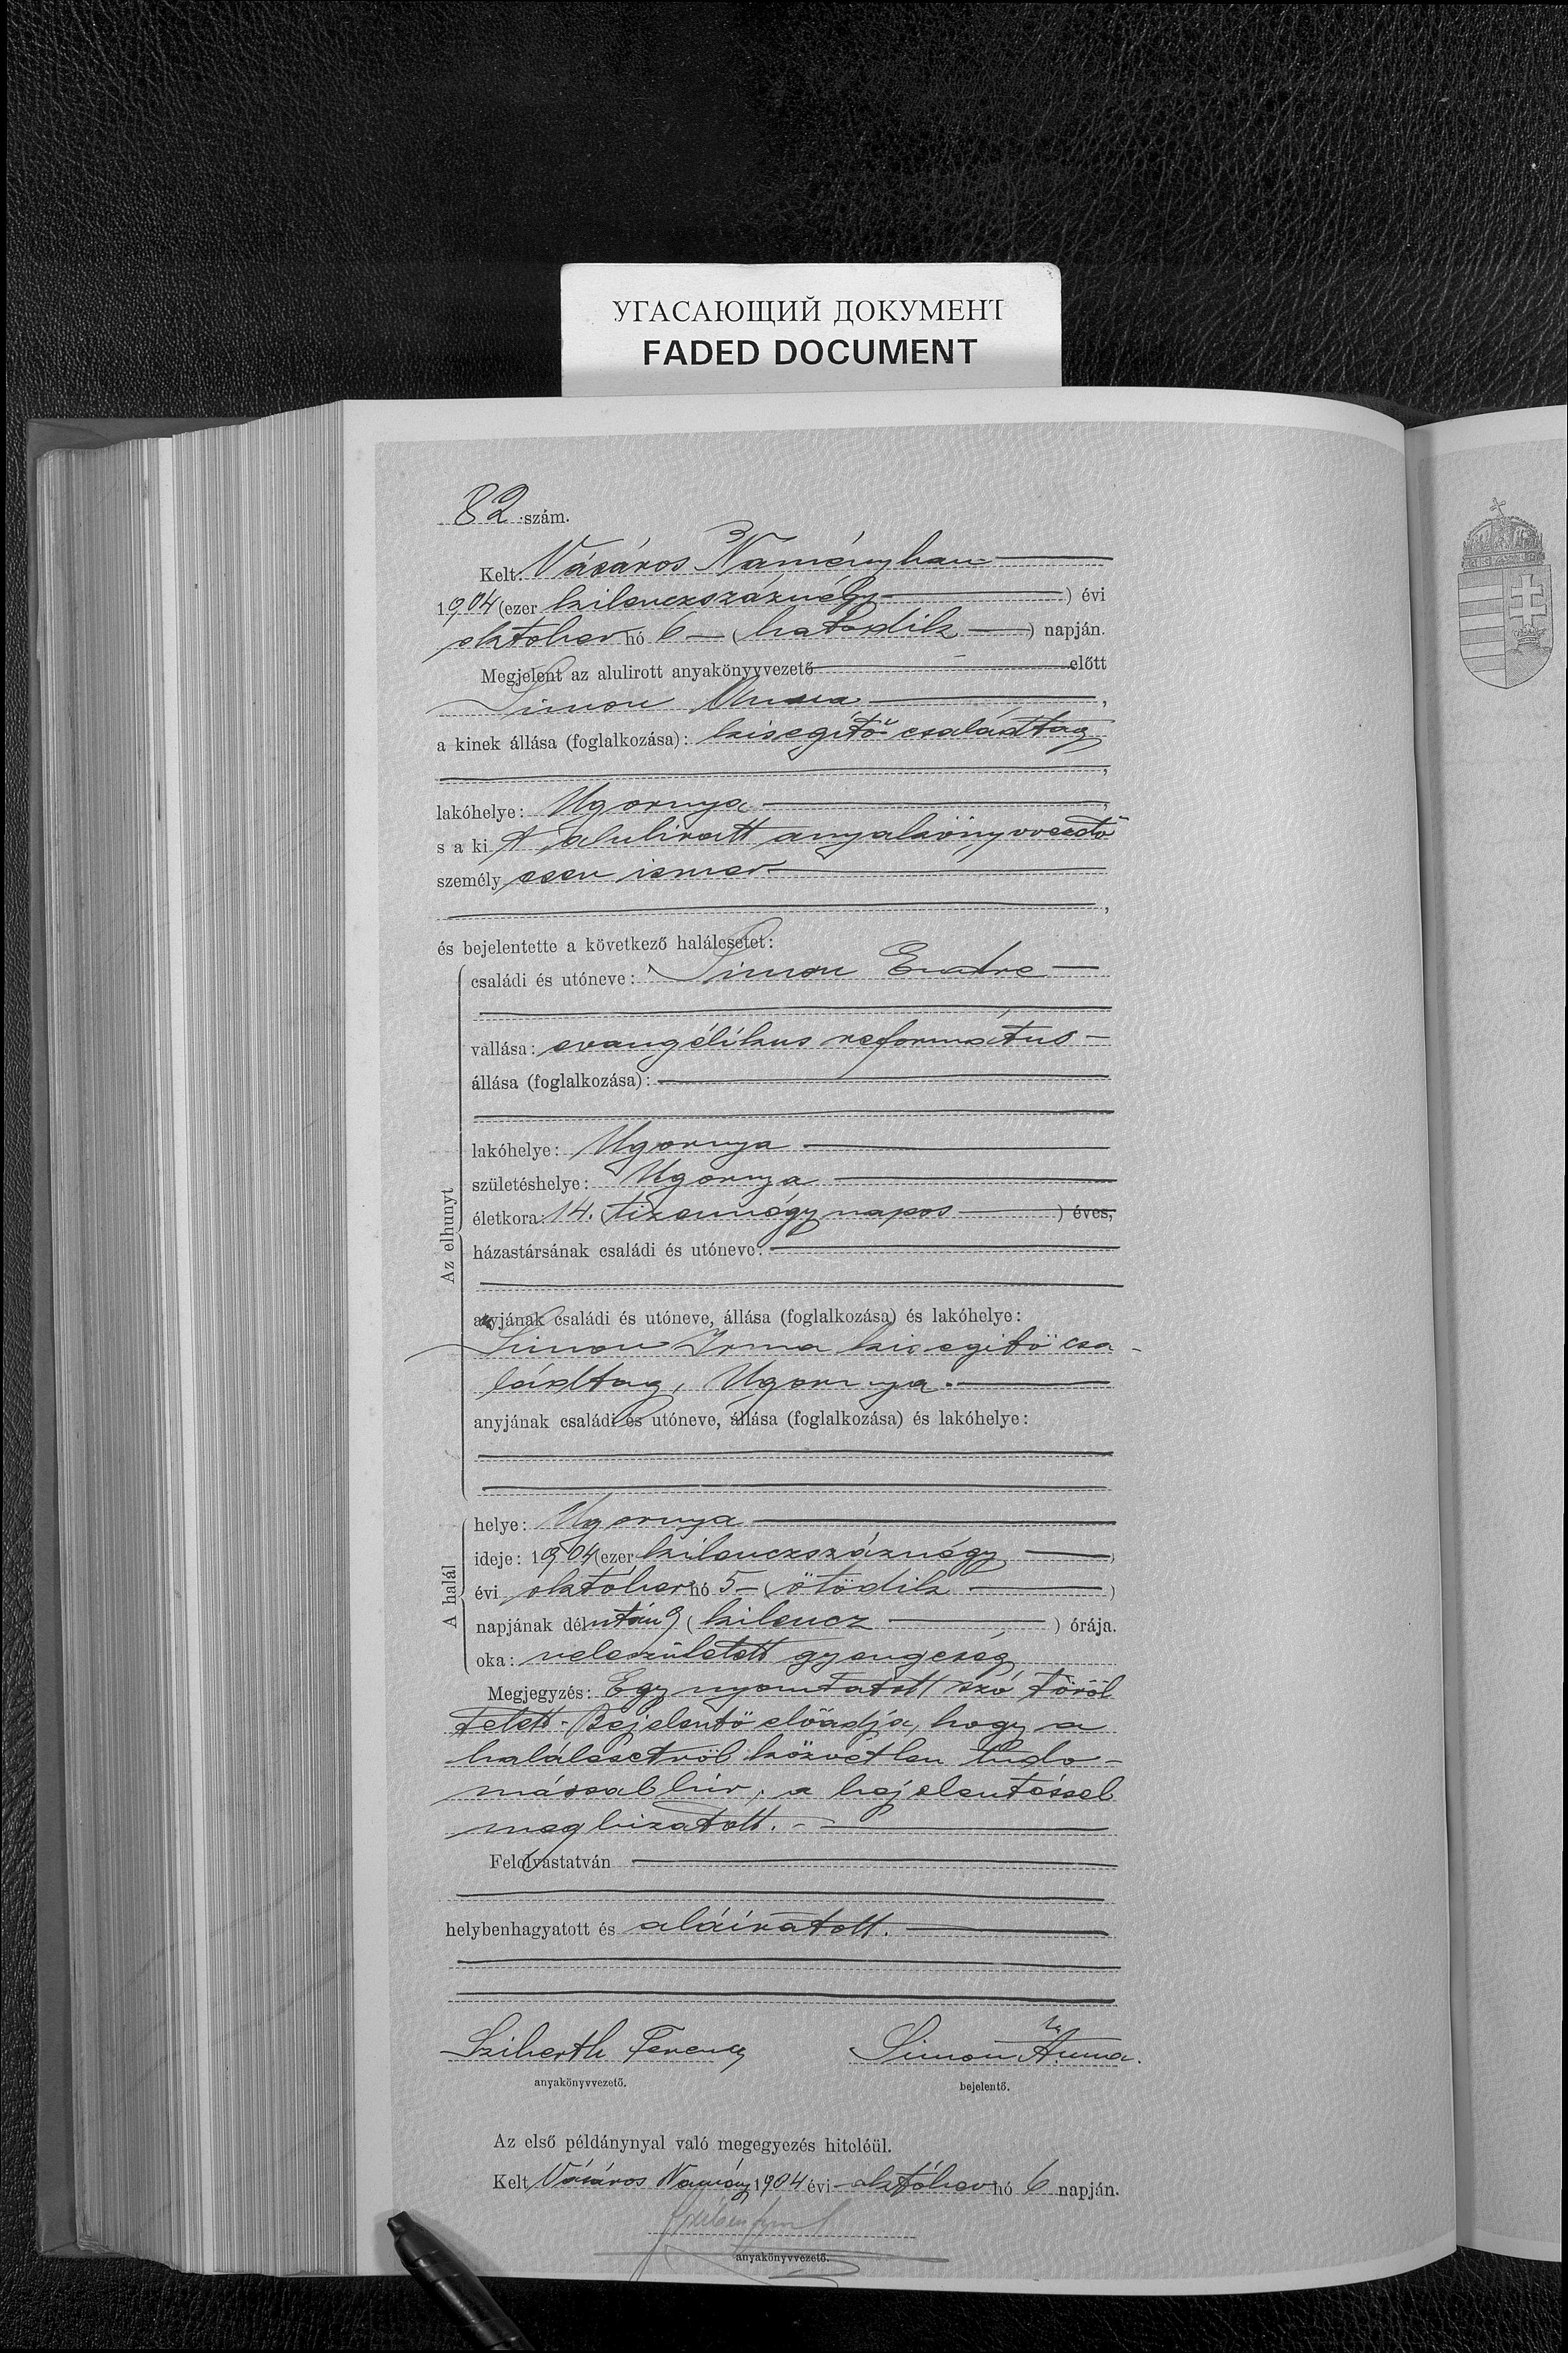 УГАСАЮЩИЙ ДОКУМЕНТ
FADED DOCUMENT
82 szám.
Kelt: Vásáros Naményban
1904 (ezer kilenczszáznégy ) évi
oktober hó 6 – ( hatodik ) napján.
Megjelent az alulirott anyakönyvvezető előtt
Simon Anna ,
a kinek állása (foglalkozása): kisegitő családtag
,
lakóhelye: Ugornya ,
s a ki t alulirott anyakönyvvezető
személy esen ismer
,
és bejelentette a következő halálesetet:
Az elhunyt
családi és utóneve: Simon Endre
vallása: evangélikus református –
állása (foglalkozása):
lakóhelye: Ugornya
születéshelye: Ugornya
életkora: 14. (tizennégy napos ) éves,
házastársának családi és utóneve:
atyjának családi és utóneve, állása (foglalkozása) és lakóhelye:
Simon Irma kisegitő csa-
ládtag, Ugornya.
anyjának családi és utóneve, állása (foglalkozása) és lakóhelye:
A halál
helye: Ugornya
ideje: 1904 (ezer kilenczszáznégy )
évi október hó 5 – ( ötödik )
napjának délután 9 ( kilencz ) órája.
oka: veleszületett gyengeség
Megjegyzés: Egy nyomtatott szó töröl
tetett. Bejelentő előadja, hogy a
halálesetről közvetlen tudo-
mással bir, a bejelentéssel
megbizatott. –
Felolvastatván
helybenhagyatott és aláiratott.
Sziberth Ferencz Simon Anna.
anyakönyvvezető. bejelentő.
Az első példánynyal való megegyezés hiteléül.
Kelt Vásáros Namény 1904 évi október hó 6 napján.
anyakönyvvezető.